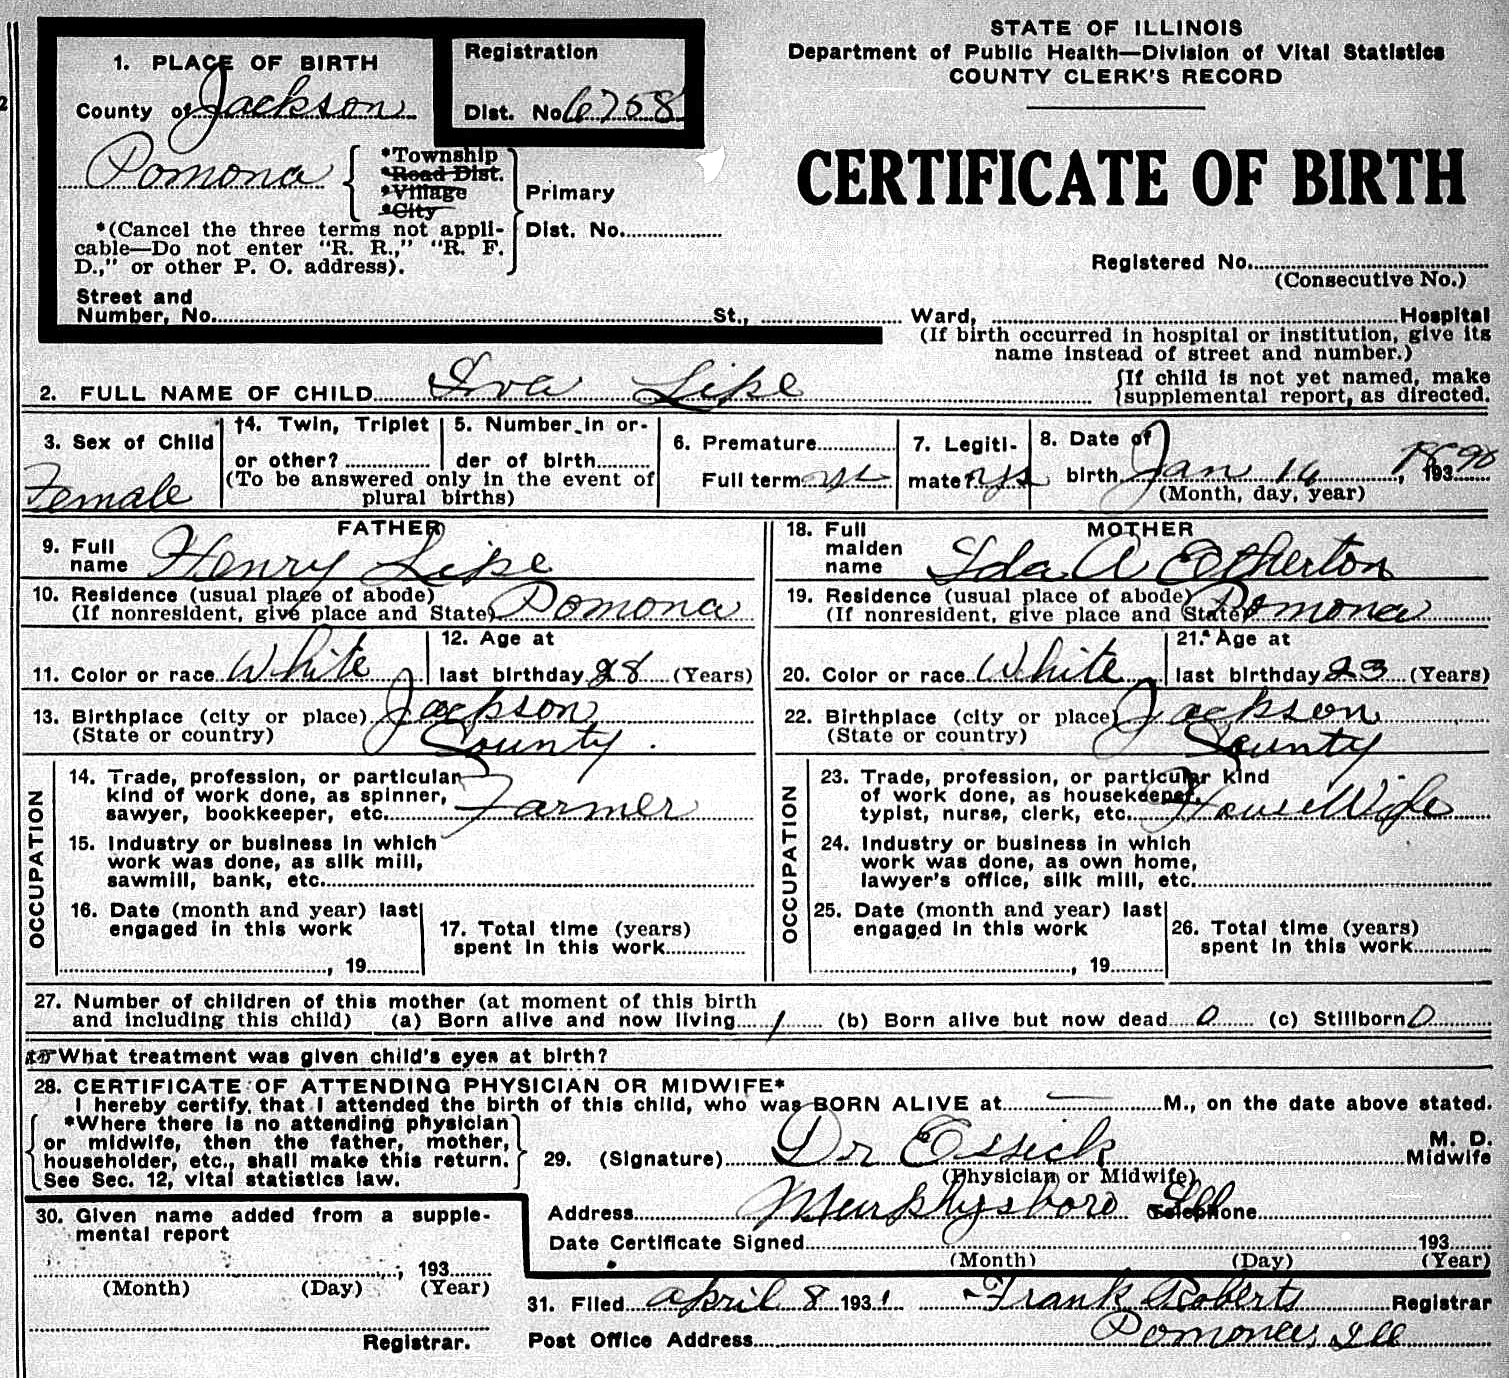 STATE OF ILLINOIS
Department of Public Health—Division of Vital Statistics
COUNTY CLERK'S RECORD
CERTIFICATE OF BIRTH
Registered No.
(Consecutive No.)
1. PLACE OF BIRTH
County of Jackson
Registration
Dist. No. 6758
Pomona
*Township
*Road Dist.
*Village
*City
Primary
Dist. No.
*(Cancel the three terms not appli-
cable—Do not enter "R. R.," "R. F.
D.," or other P. O. address).
Street and
Number, No. St., Ward, Hospital
(If birth occurred in hospital or institution, give its
name instead of street and number.)
2. FULL NAME OF CHILD Iva Lipe
{If child is not yet named, make
supplemental report, as directed.
3. Sex of Child
Female
†4. Twin, Triplet
or other?
5. Number in or-
der of birth
(To be answered only in the event of
plural births)
6. Premature
Full term yes
7. Legiti-
mate? yes
8. Date of
birth Jan 16, 1890 193
(Month, day, year)
FATHER
9. Full
name Henry Lipe
10. Residence (usual place of abode)
(If nonresident, give place and State) Pomona
11. Color or race White
12. Age at
last birthday 28 (Years)
13. Birthplace (city or place) Jackson
(State or country) County
OCCUPATION
14. Trade, profession, or particular
kind of work done, as spinner,
sawyer, bookkeeper, etc. Farmer
15. Industry or business in which
work was done, as silk mill,
sawmill, bank, etc.
16. Date (month and year) last
engaged in this work
, 19
17. Total time (years)
spent in this work
MOTHER
18. Full
maiden
name Ida A Etherton
19. Residence (usual place of abode)
(If nonresident, give place and State) Pomona
20. Color or race White
21. Age at
last birthday 23 (Years)
22. Birthplace (city or place) Jackson
(State or country) County
OCCUPATION
23. Trade, profession, or particular kind
of work done, as housekeeper,
typist, nurse, clerk, etc. HouseWife
24. Industry or business in which
work was done, as own home,
lawyer's office, silk mill, etc.
25. Date (month and year) last
engaged in this work
, 19
26. Total time (years)
spent in this work
27. Number of children of this mother (at moment of this birth
and including this child) (a) Born alive and now living 1 (b) Born alive but now dead 0 (c) Stillborn 0
What treatment was given child's eyes at birth?
28. CERTIFICATE OF ATTENDING PHYSICIAN OR MIDWIFE*
I hereby certify, that I attended the birth of this child, who was BORN ALIVE at — M., on the date above stated.
*Where there is no attending physician
or midwife, then the father, mother,
householder, etc., shall make this return.
See Sec. 12, vital statistics law.
29. (Signature) Dr Essick M. D.
Midwife
(Physician or Midwife)
Address Murphysboro Ill Telephone
Date Certificate Signed 193
(Month) (Day) (Year)
30. Given name added from a supple-
mental report
, 193
(Month) (Day) (Year)
Registrar.
31. Filed April 8 1931 Frank Roberts Registrar
Post Office Address Pomona, Ill